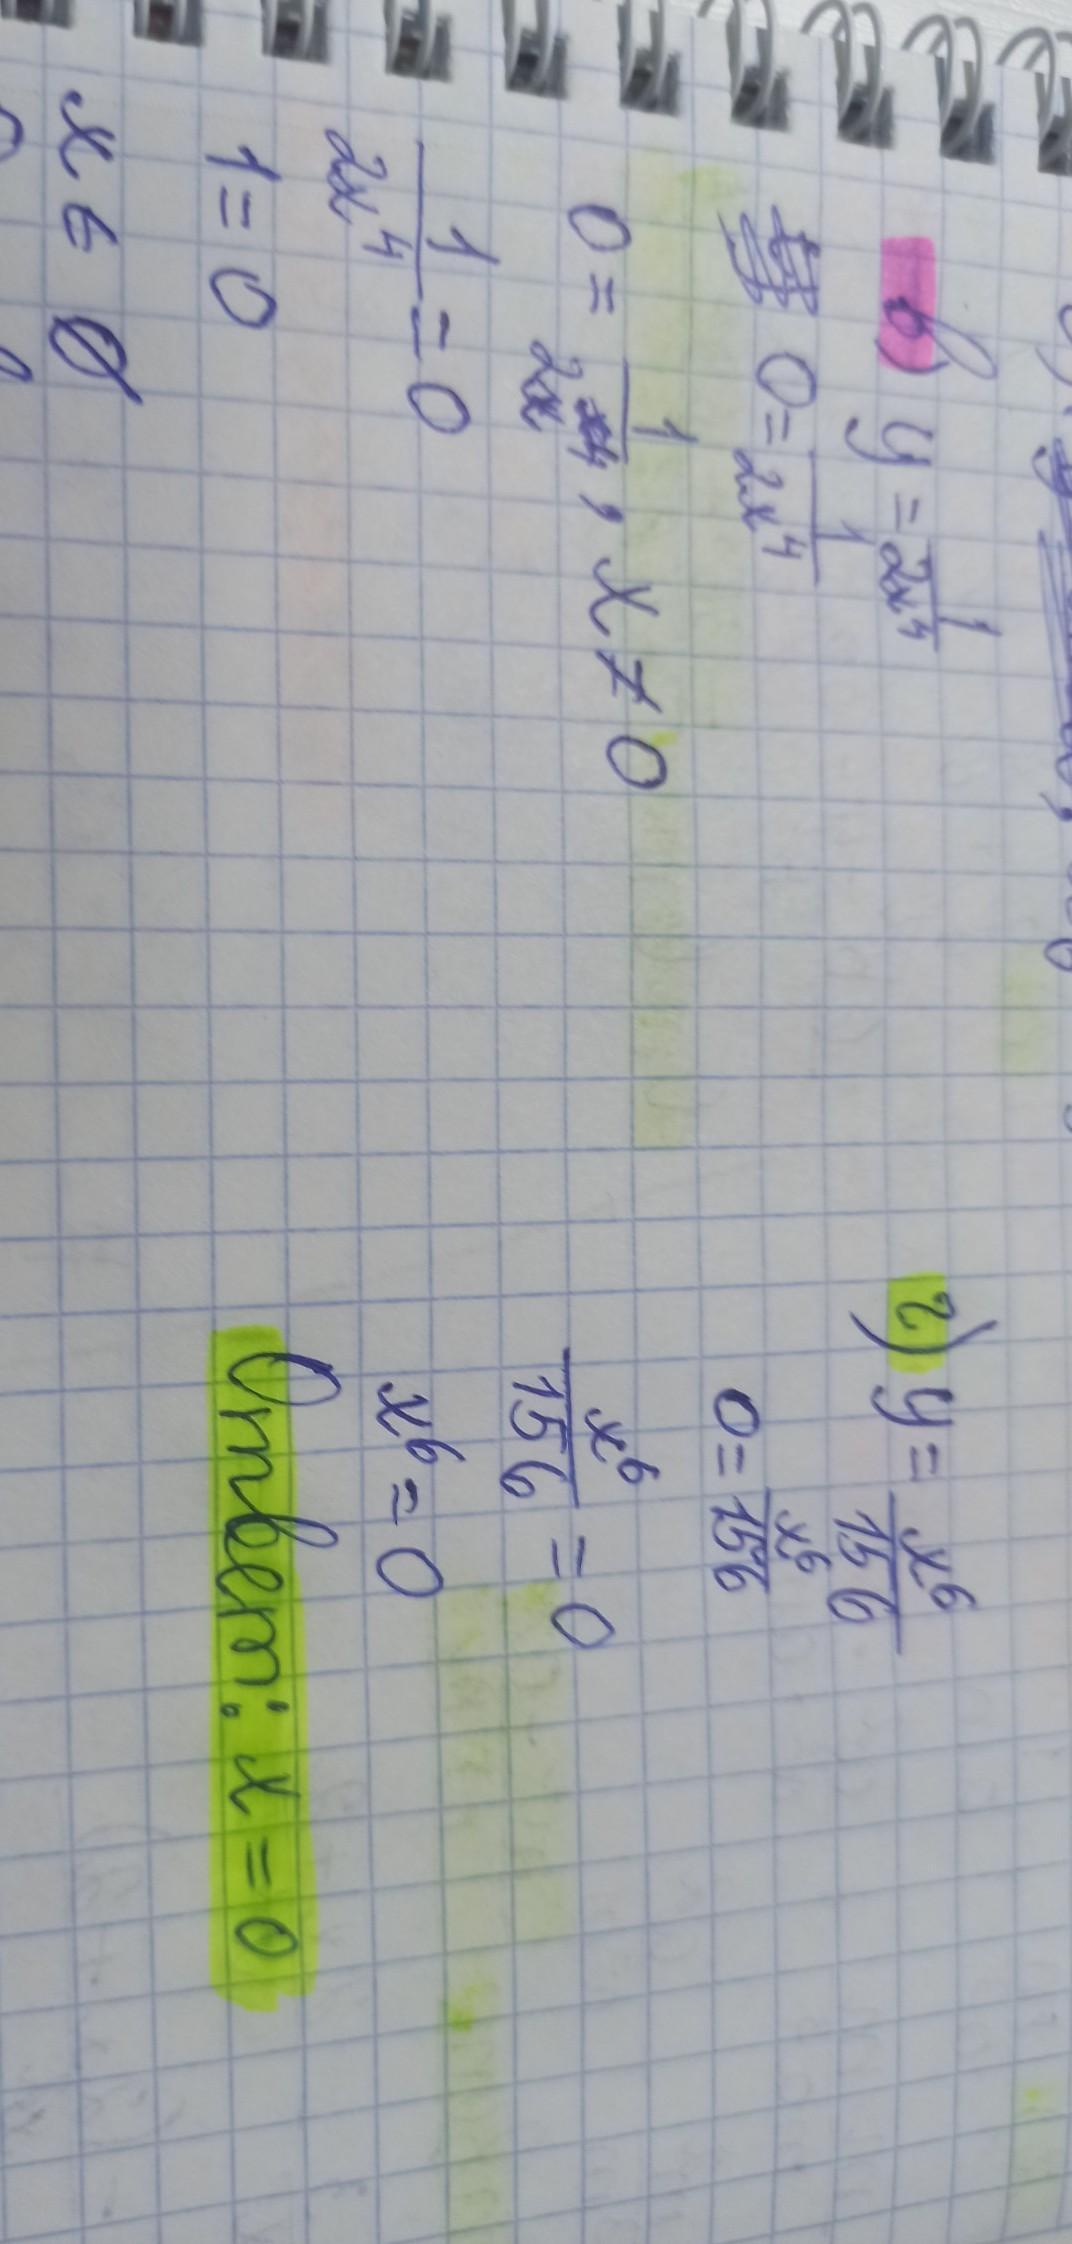 в) y = 1/2x⁴
0 = 1/2x⁴
0 = 1/2x⁴, x ≠ 0
1/2x⁴ = 0
1 = 0
x ∈ ∅
г) y = x⁶/156
0 = x⁶/156
x⁶/156 = 0
x⁶ = 0
Ответ: x = 0